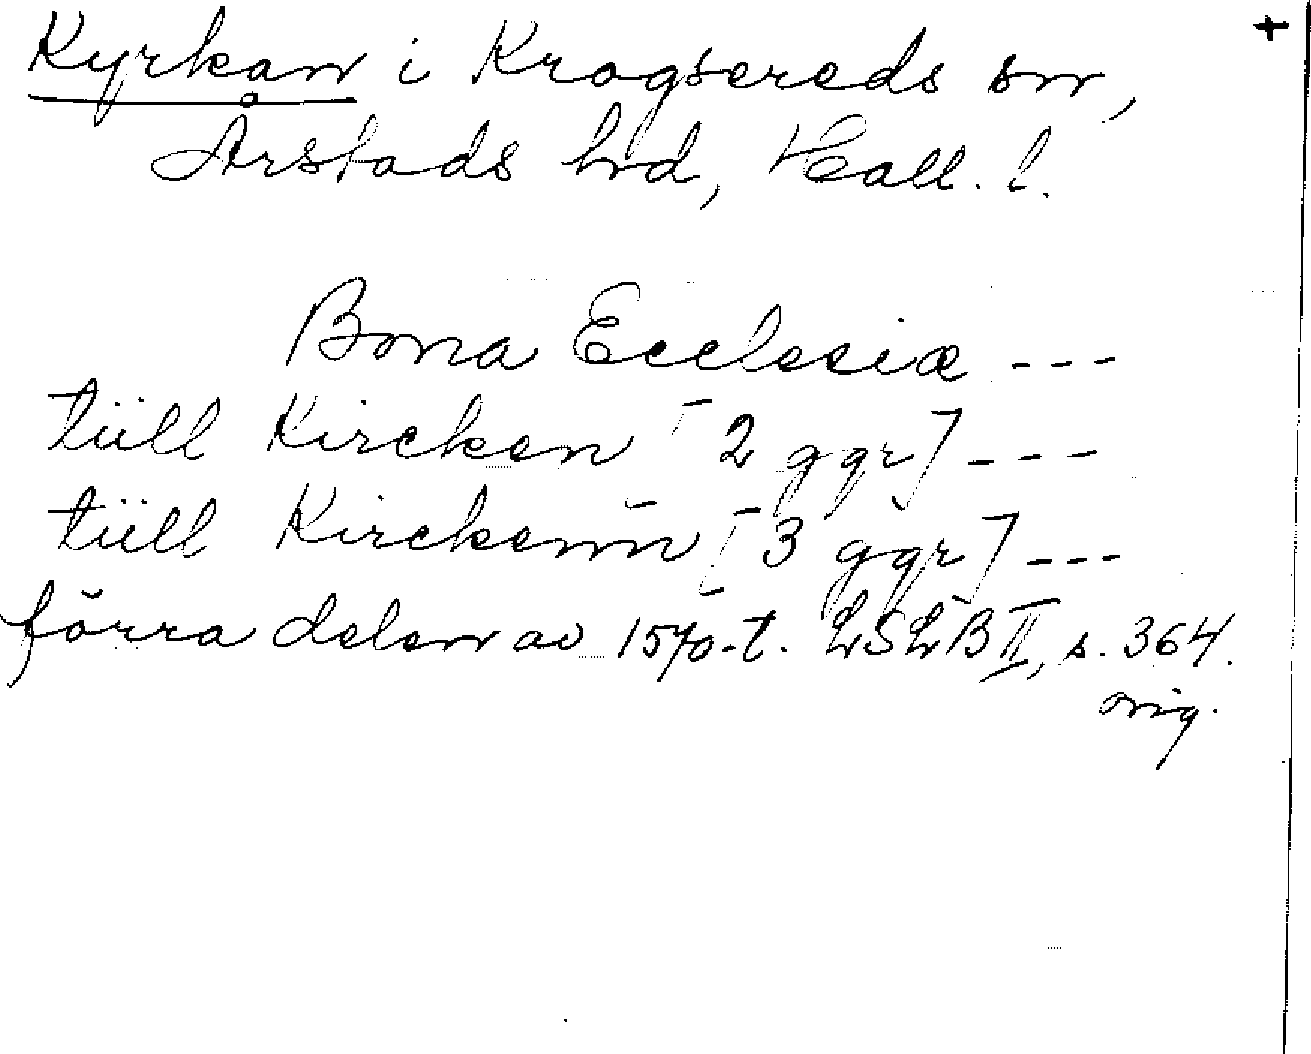 +
Kyrkan i Krogsereds sn,
Årstads hd, Hall. l.
Bona Ecclesiæ ---
tüll Kircken [2 ggr] ---
tüll Kirckenn [3 ggr] ---
förra delen av 1570-t. LSLB II, s. 364.
orig.